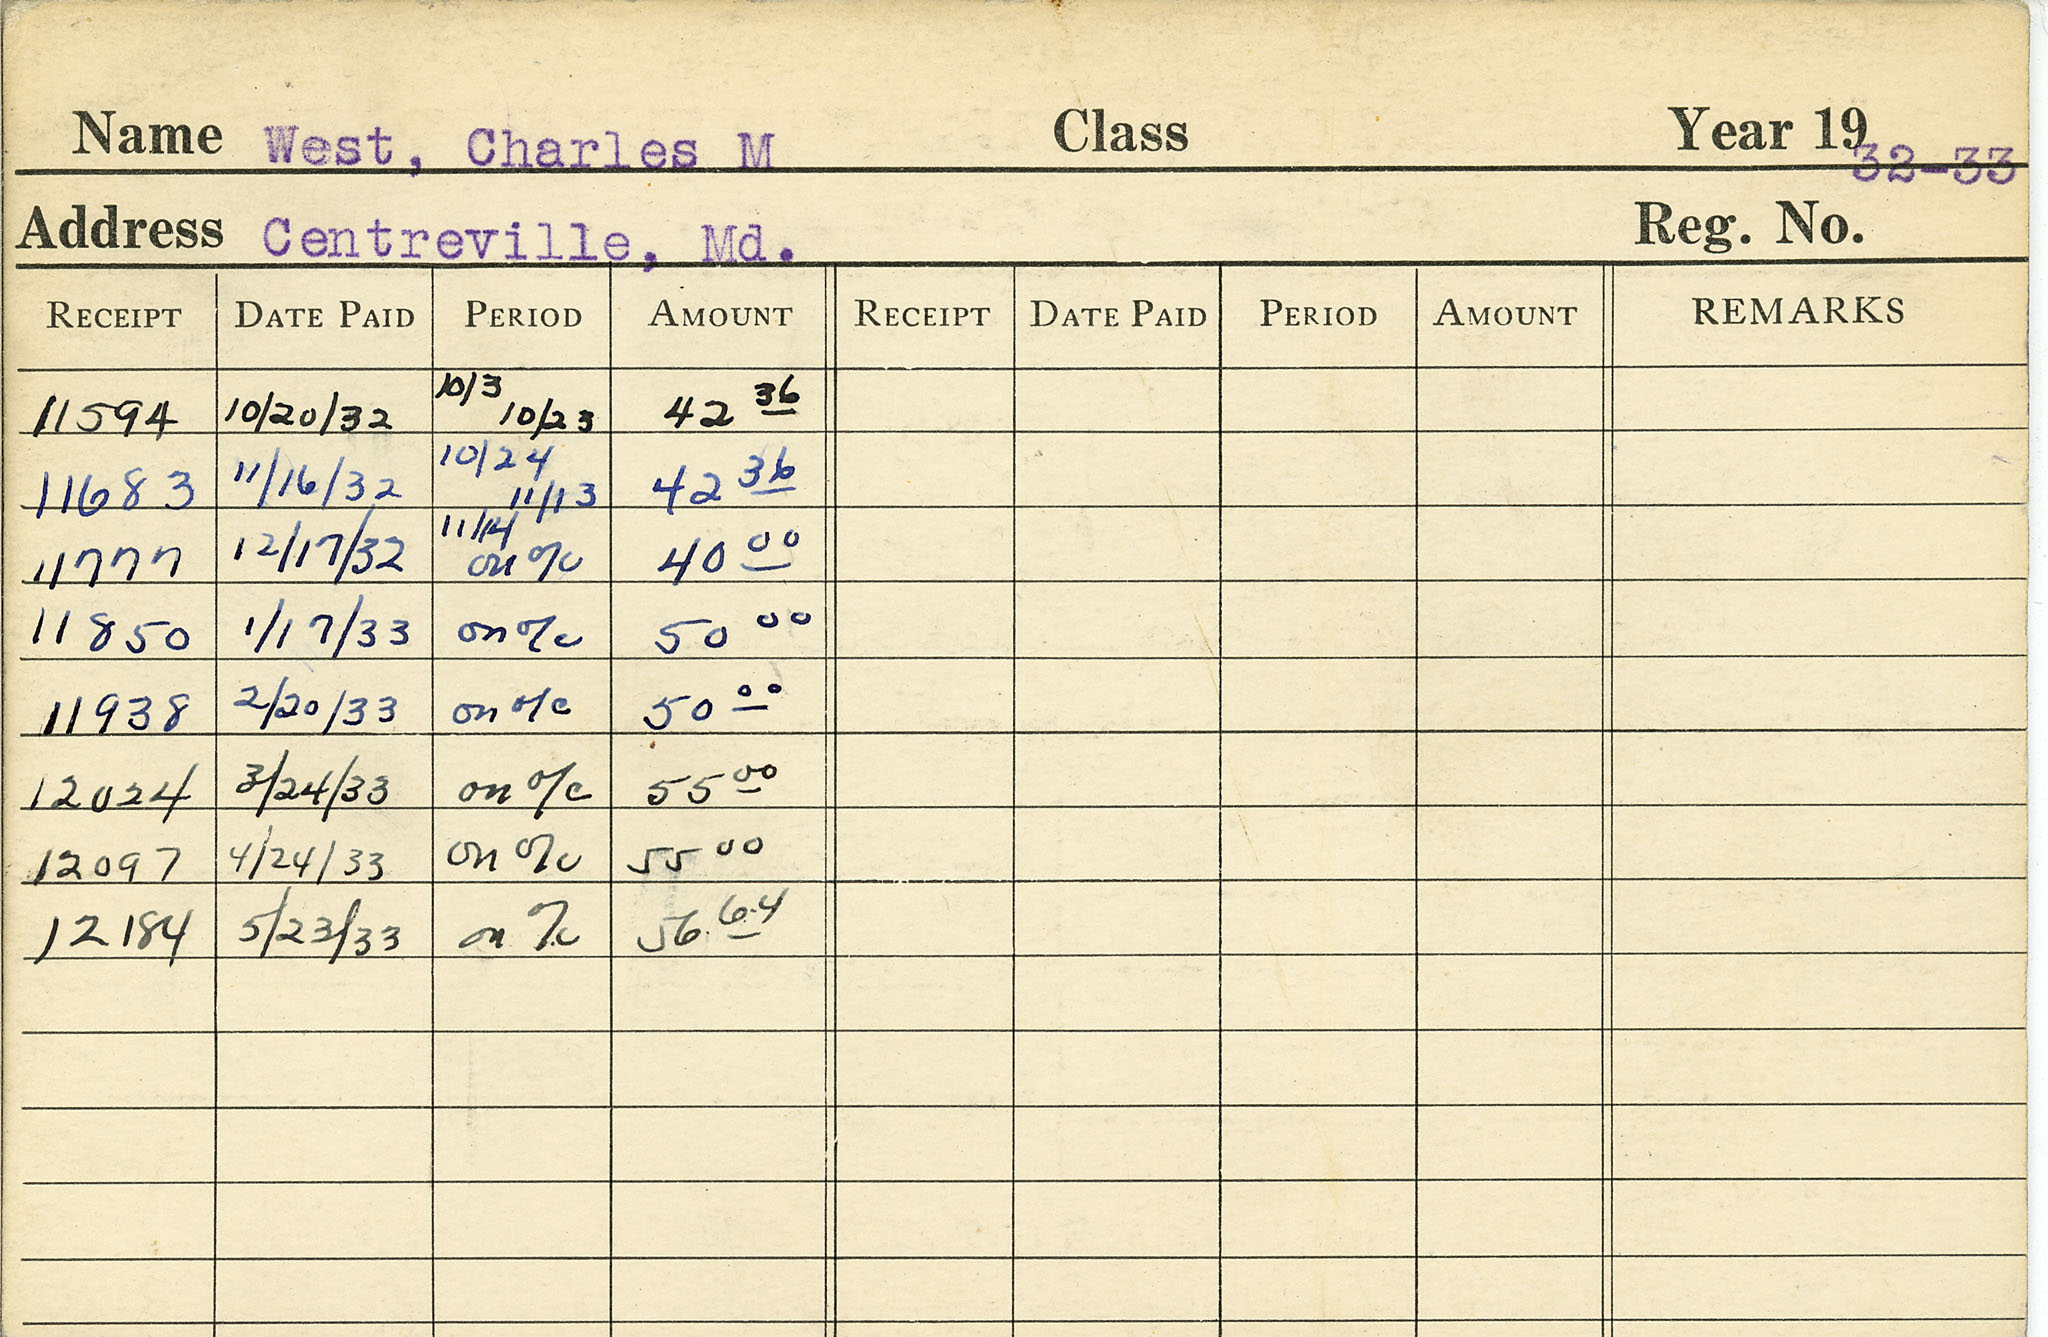 Name West, Charles M Class Year 19 32-33
Address Centreville, Md. Reg. No.
RECEIPT DATE PAID PERIOD AMOUNT RECEIPT DATE PAID PERIOD AMOUNT REMARKS
11594 10/20/32 10/3 10/23 42 36
11683 11/16/32 10/24 11/13 42 36
11777 12/17/32 11/14 on a/c 40 00
11850 1/17/33 on a/c 50 00
11938 2/20/33 on a/c 50 00
12024 3/24/33 on a/c 55 00
12097 4/24/33 on a/c 55 00
12184 5/23/33 on a/c 56.64